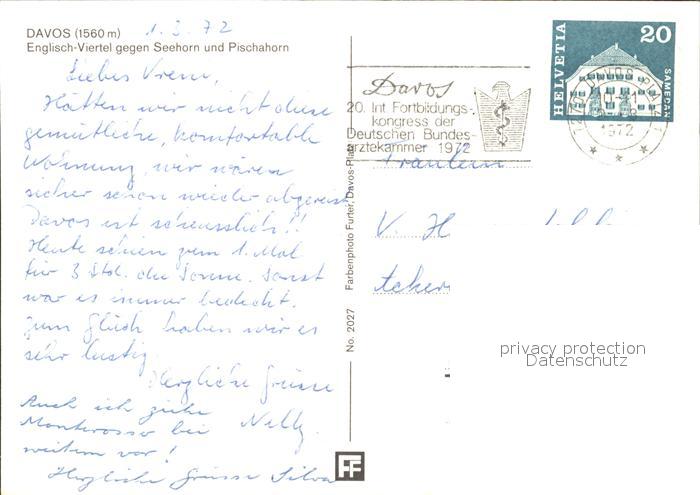 DAVOS (1560 m)
1.3.72
Englisch-Viertel gegen Seehorn und Pischahorn
Liebes Vreni,
Hätten wir nicht diese
gemütliche, komfortable
Wohnung, wir wären
sicher schon wieder abgereist
Davos ist scheusslich!!
Heute schien zum 1. Mal
für 3 Std. die Sonne. Sonst
war es immer bedeckt.
Zum Glück haben wir es
sehr lustig.
Herzliche Grüsse
Nelly.
Auch ich ziehe
Monterosso bei
weitem vor!
Herzliche Grüsse Silva
No. 2027 Farbenphoto Furter, Davos-Platz
FF
Davos
20. Int Fortbildungs-
kongress der
Deutschen Bundes-
ärztekammer 1972
HELVETIA
20
SAMEDAN
DAVOS PLATZ 1
1972
Fräulein
V. H
privacy protection
Datenschutz